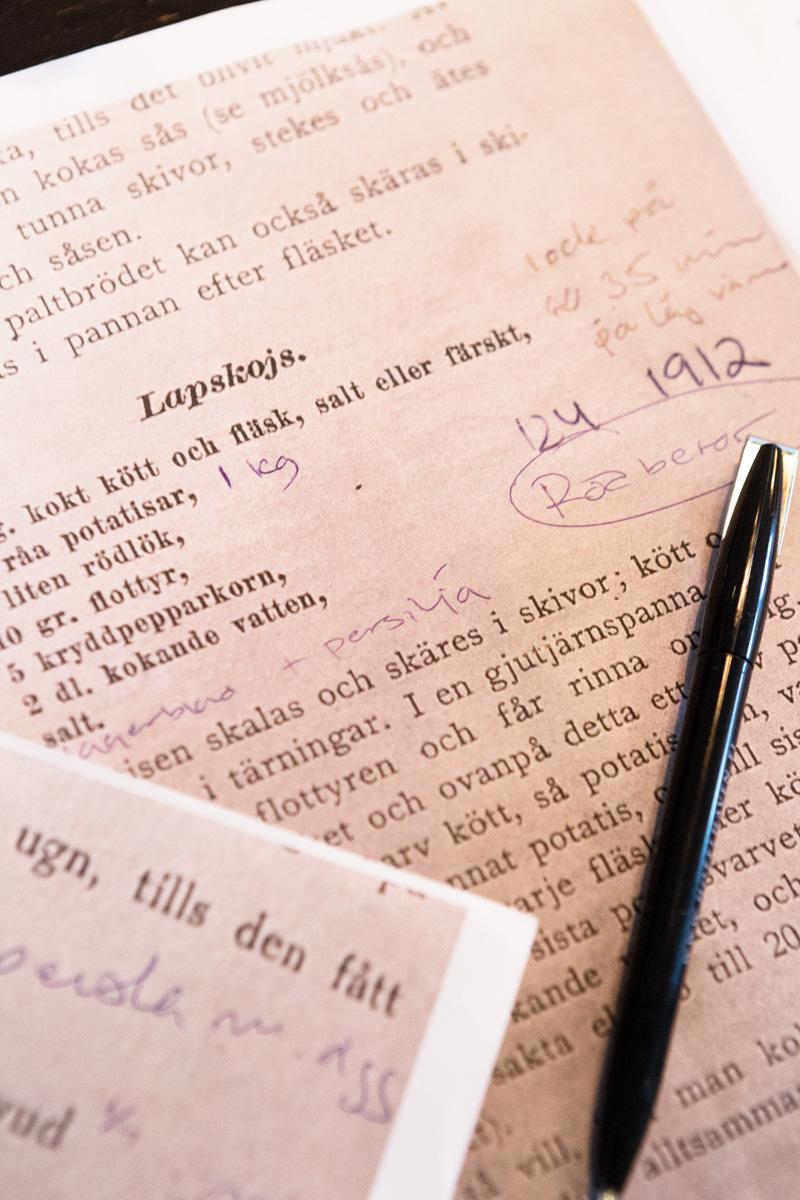 tills det blivit mjukt.
kokas sås (se mjölksås), och
tunna skivor, stekes och ätes
och såsen.
paltbrödet kan också skäras i ski-
i pannan efter fläsket.
lock på
35 min
på låg värme
Lapskojs.
g. kokt kött och fläsk, salt eller färskt,
124 1912
råa potatisar, 1 kg
Rödbetor
liten rödlök,
10 gr. flottyr,
5 kryddpepparkorn,
2 dl. kokande vatten,
+ persilja
salt.
lagerblad
isen skalas och skäres i skivor; kött o
i tärningar. I en gjutjärnspanna
flottyren och får rinna
et och ovanpå detta ett
arv kött, så potatis
nnat potatis, till
arje fläsk
sista
kande et, och
sakta till 20
man
vill, alltsamma
ugn, tills den fått
m. ägg
vud